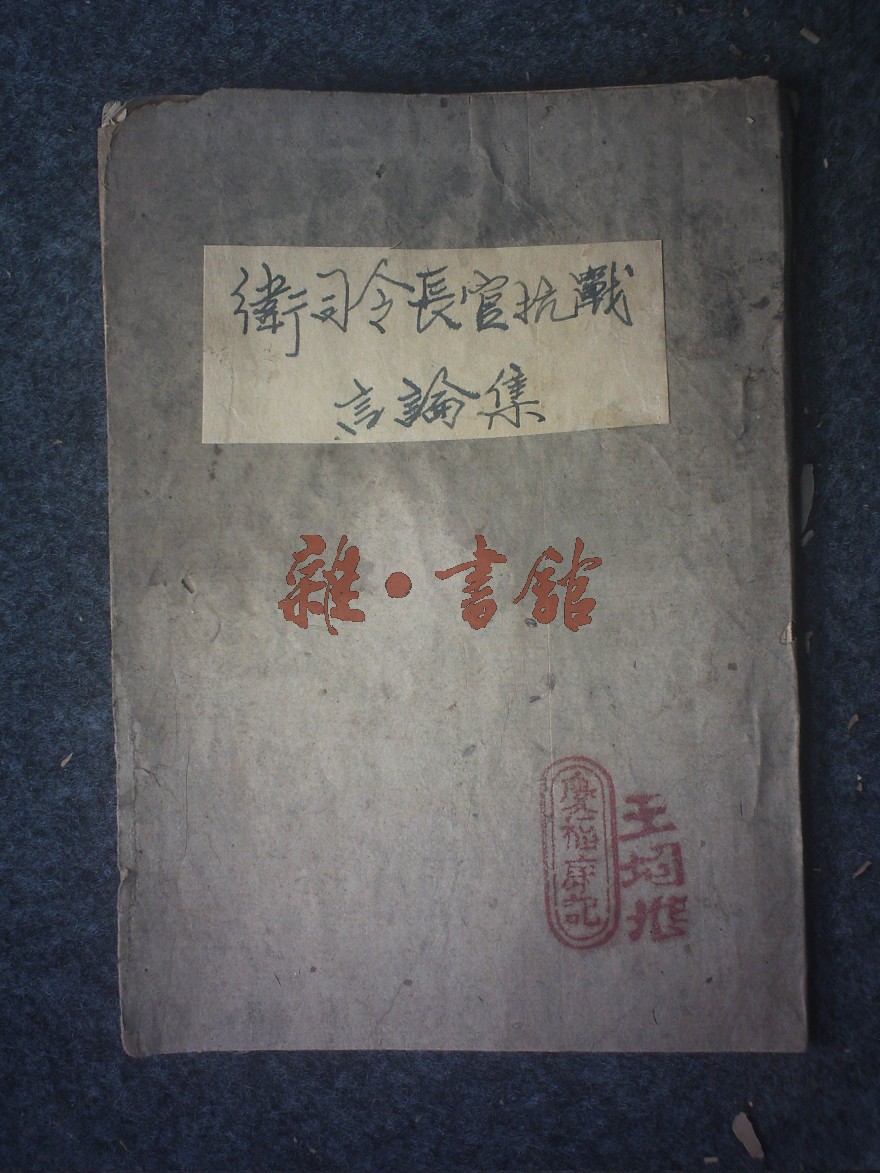 衛司令長官抗戰
言論集
雜·書館